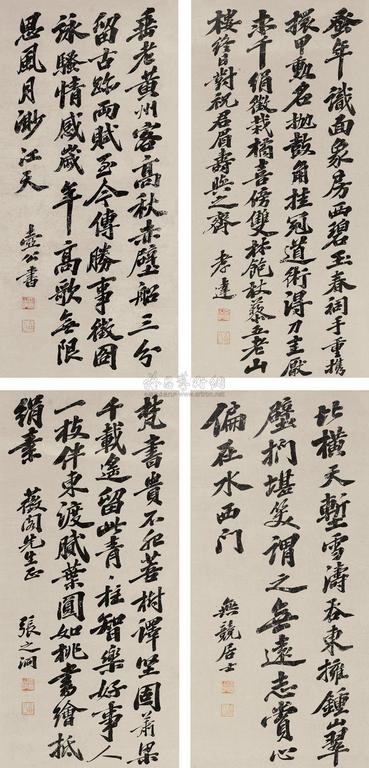 蚤年識面象房西碧玉春祠手重攜
擐甲勳名拋鼓角挂冠道術得刀圭厭
求千絹徵栽橘喜傍雙林飽杖藜五老山
樓終日對祝君眉壽與之齊 孝達
垂老黃州客高秋赤壁船三分
留古跡兩賦至今傳勝事徵圖
詠騷情感歲年高歌無限
思風月渺江天 壺公書
比橫天塹雪濤吞東擁鍾山翠
壁捫堪笑謂之無遠志賞心
偏在水西门 無競居士
梵書貴不死菩樹譯堅固蕭梁
千載遙留此青柱智樂好事人
一枝伴東渡膩葉圓如桃書繪抵
絹素 薇閣先生正 張之洞